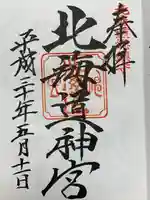 奉拝
北海道神宮
平成二十年五月十一日